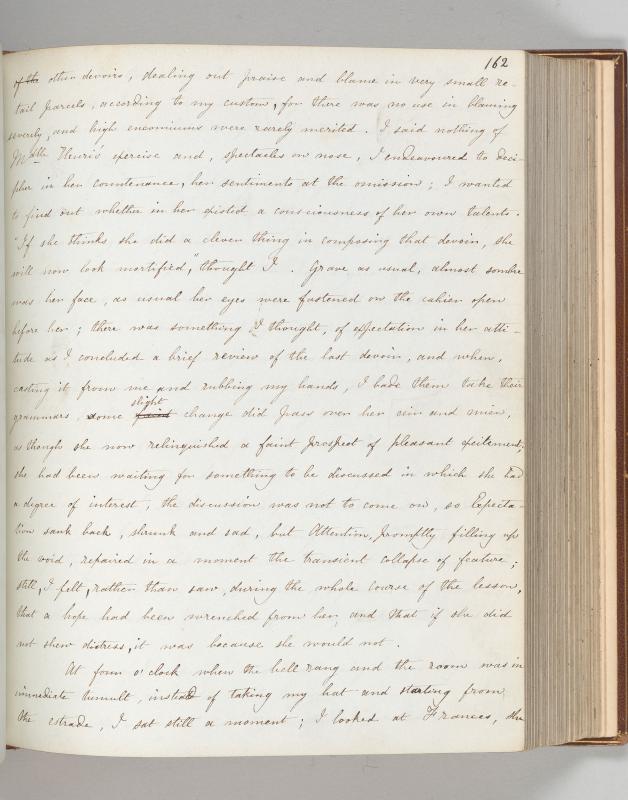 162
of the other devoirs, dealing out praise and blame in very small re-
tail parcels, according to my custom, for there was no use in blaming
severely, and high encomiums were rarely merited. I said nothing of
Mdlle Henri's exercise and, spectacles on nose, I endeavoured to deci-
pher in her countenance, her sentiments at the omission; I wanted
to find out whether in her existed a consciousness of her own talents.
"If she thinks she did a clever thing in composing that devoir, she
will now look mortified," thought I. Grave as usual, almost sombre
was her face, as usual her eyes were fastened on the cahier open
before her; there was something I thought, of expectation in her atti-
tude as I concluded a brief review of the last devoir, and when,
casting it from me and rubbing my hands, I bade them take their
slight
grammars some faint change did pass over her air and mien,
as though she now relinquished a faint prospect of pleasant excitement;
she had been waiting for something to be discussed in which she had
a degree of interest, the discussion was not to come on, so Expecta-
tion sank back, shrunk and sad, but Attention, promptly filling up
the void, repaired in a moment the transient collapse of feature;
still, I felt, rather than saw, during the whole course of the lesson,
that a hope had been wrenched from her, and that if she did
not shew distress, it was because she would not.
At four o'clock when the bell rang and the room was in
immediate tumult, instead of taking my hat and starting from
the estrade, I sat still a moment; I looked at Frances, she